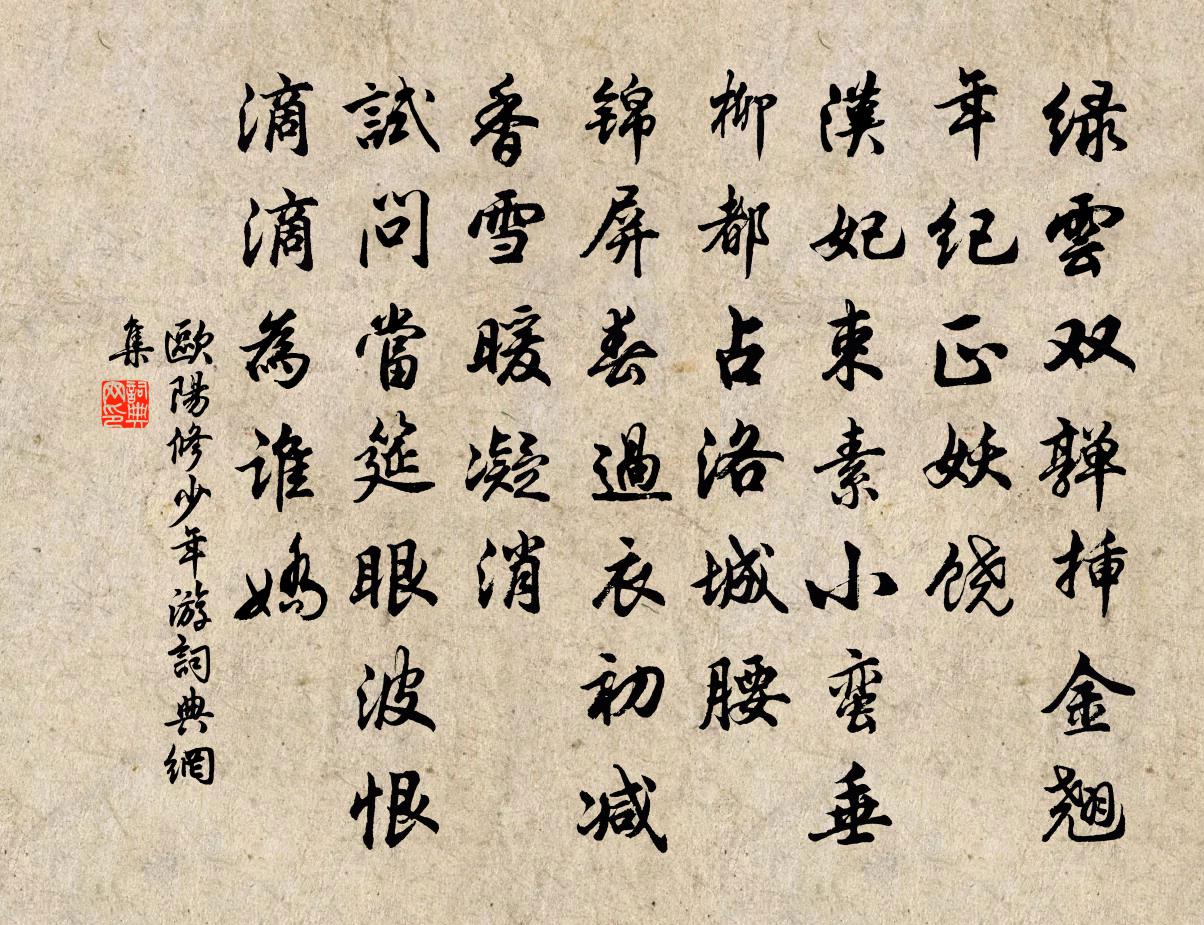 绿雲双嚲挿金翘
年纪正妖饶
漢妃束素小蛮垂
柳都占洛城腰
锦屏春過衣初减
香雪暖凝消
試问當筵眼波恨
滴滴為谁嬌
歐陽修少年游詞典網
集
詞典
网印